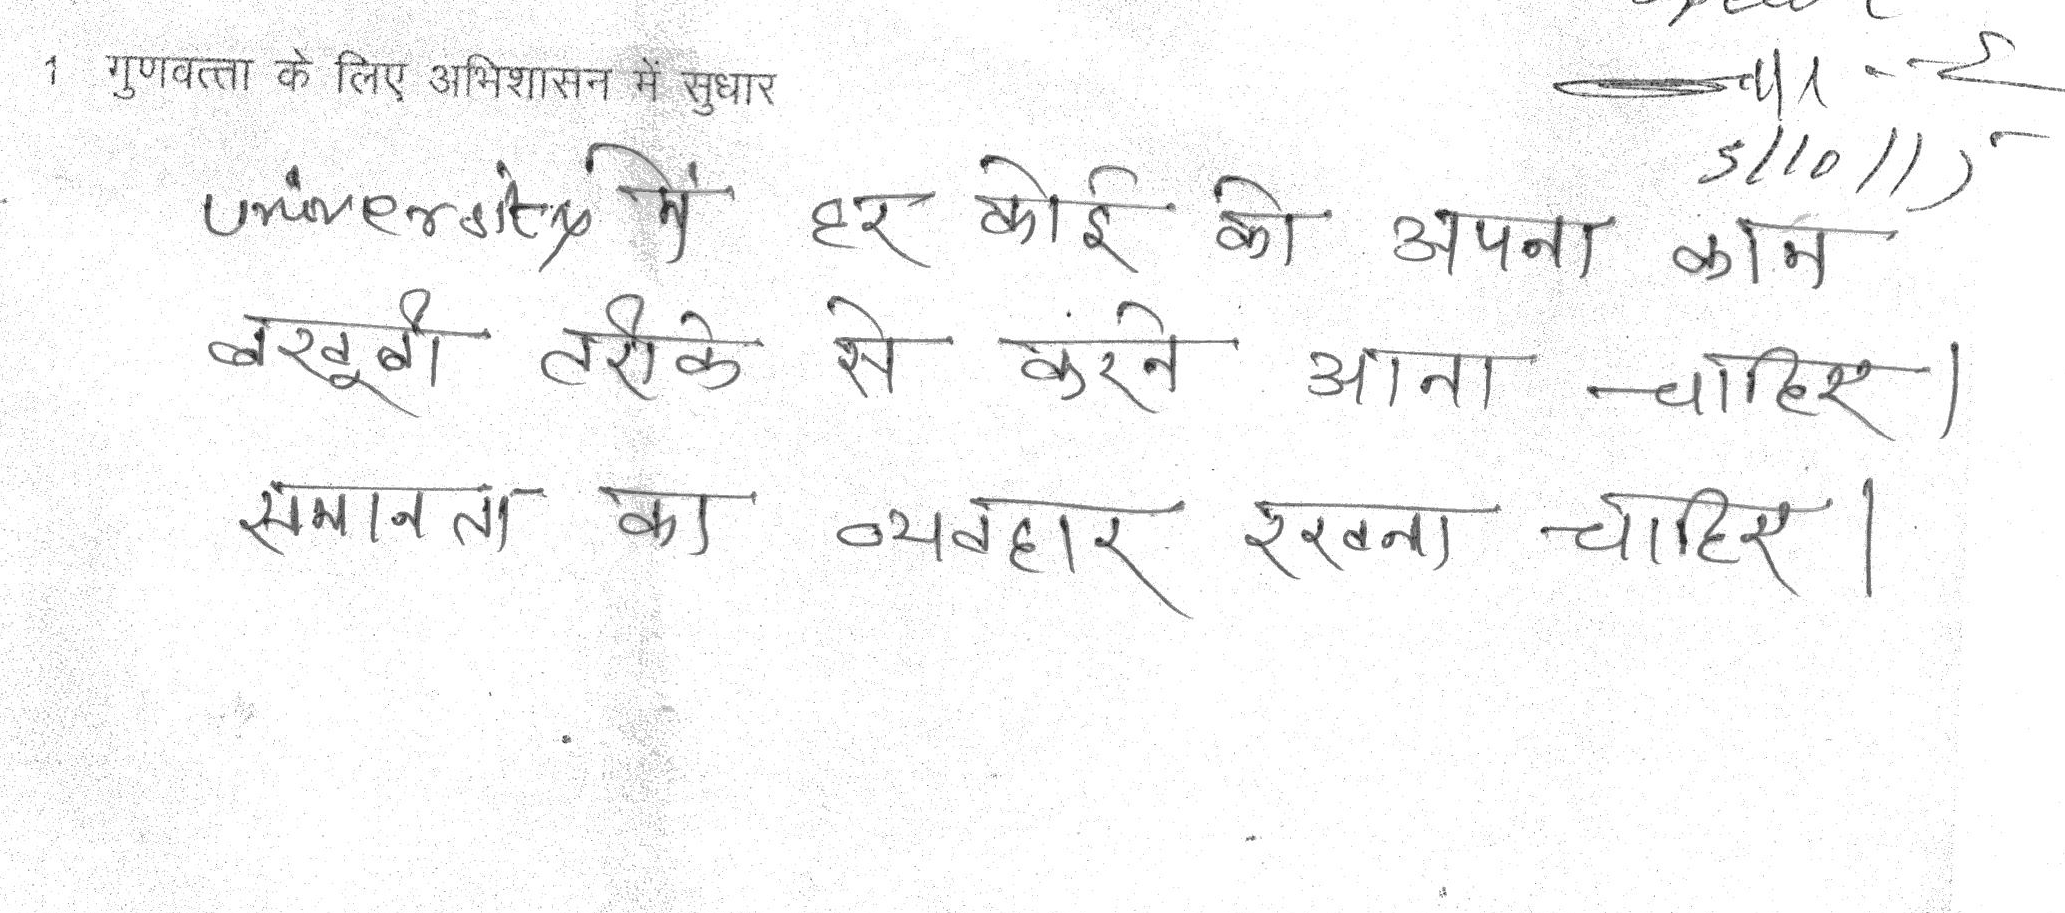 1 गुणवत्ता के लिए अभिशासन में सुधार
5/10/15
University में हर कोई को अपना काम
बखूबी तरीके से करने आना चाहिए।
समानता का व्यवहार रखना चाहिए।